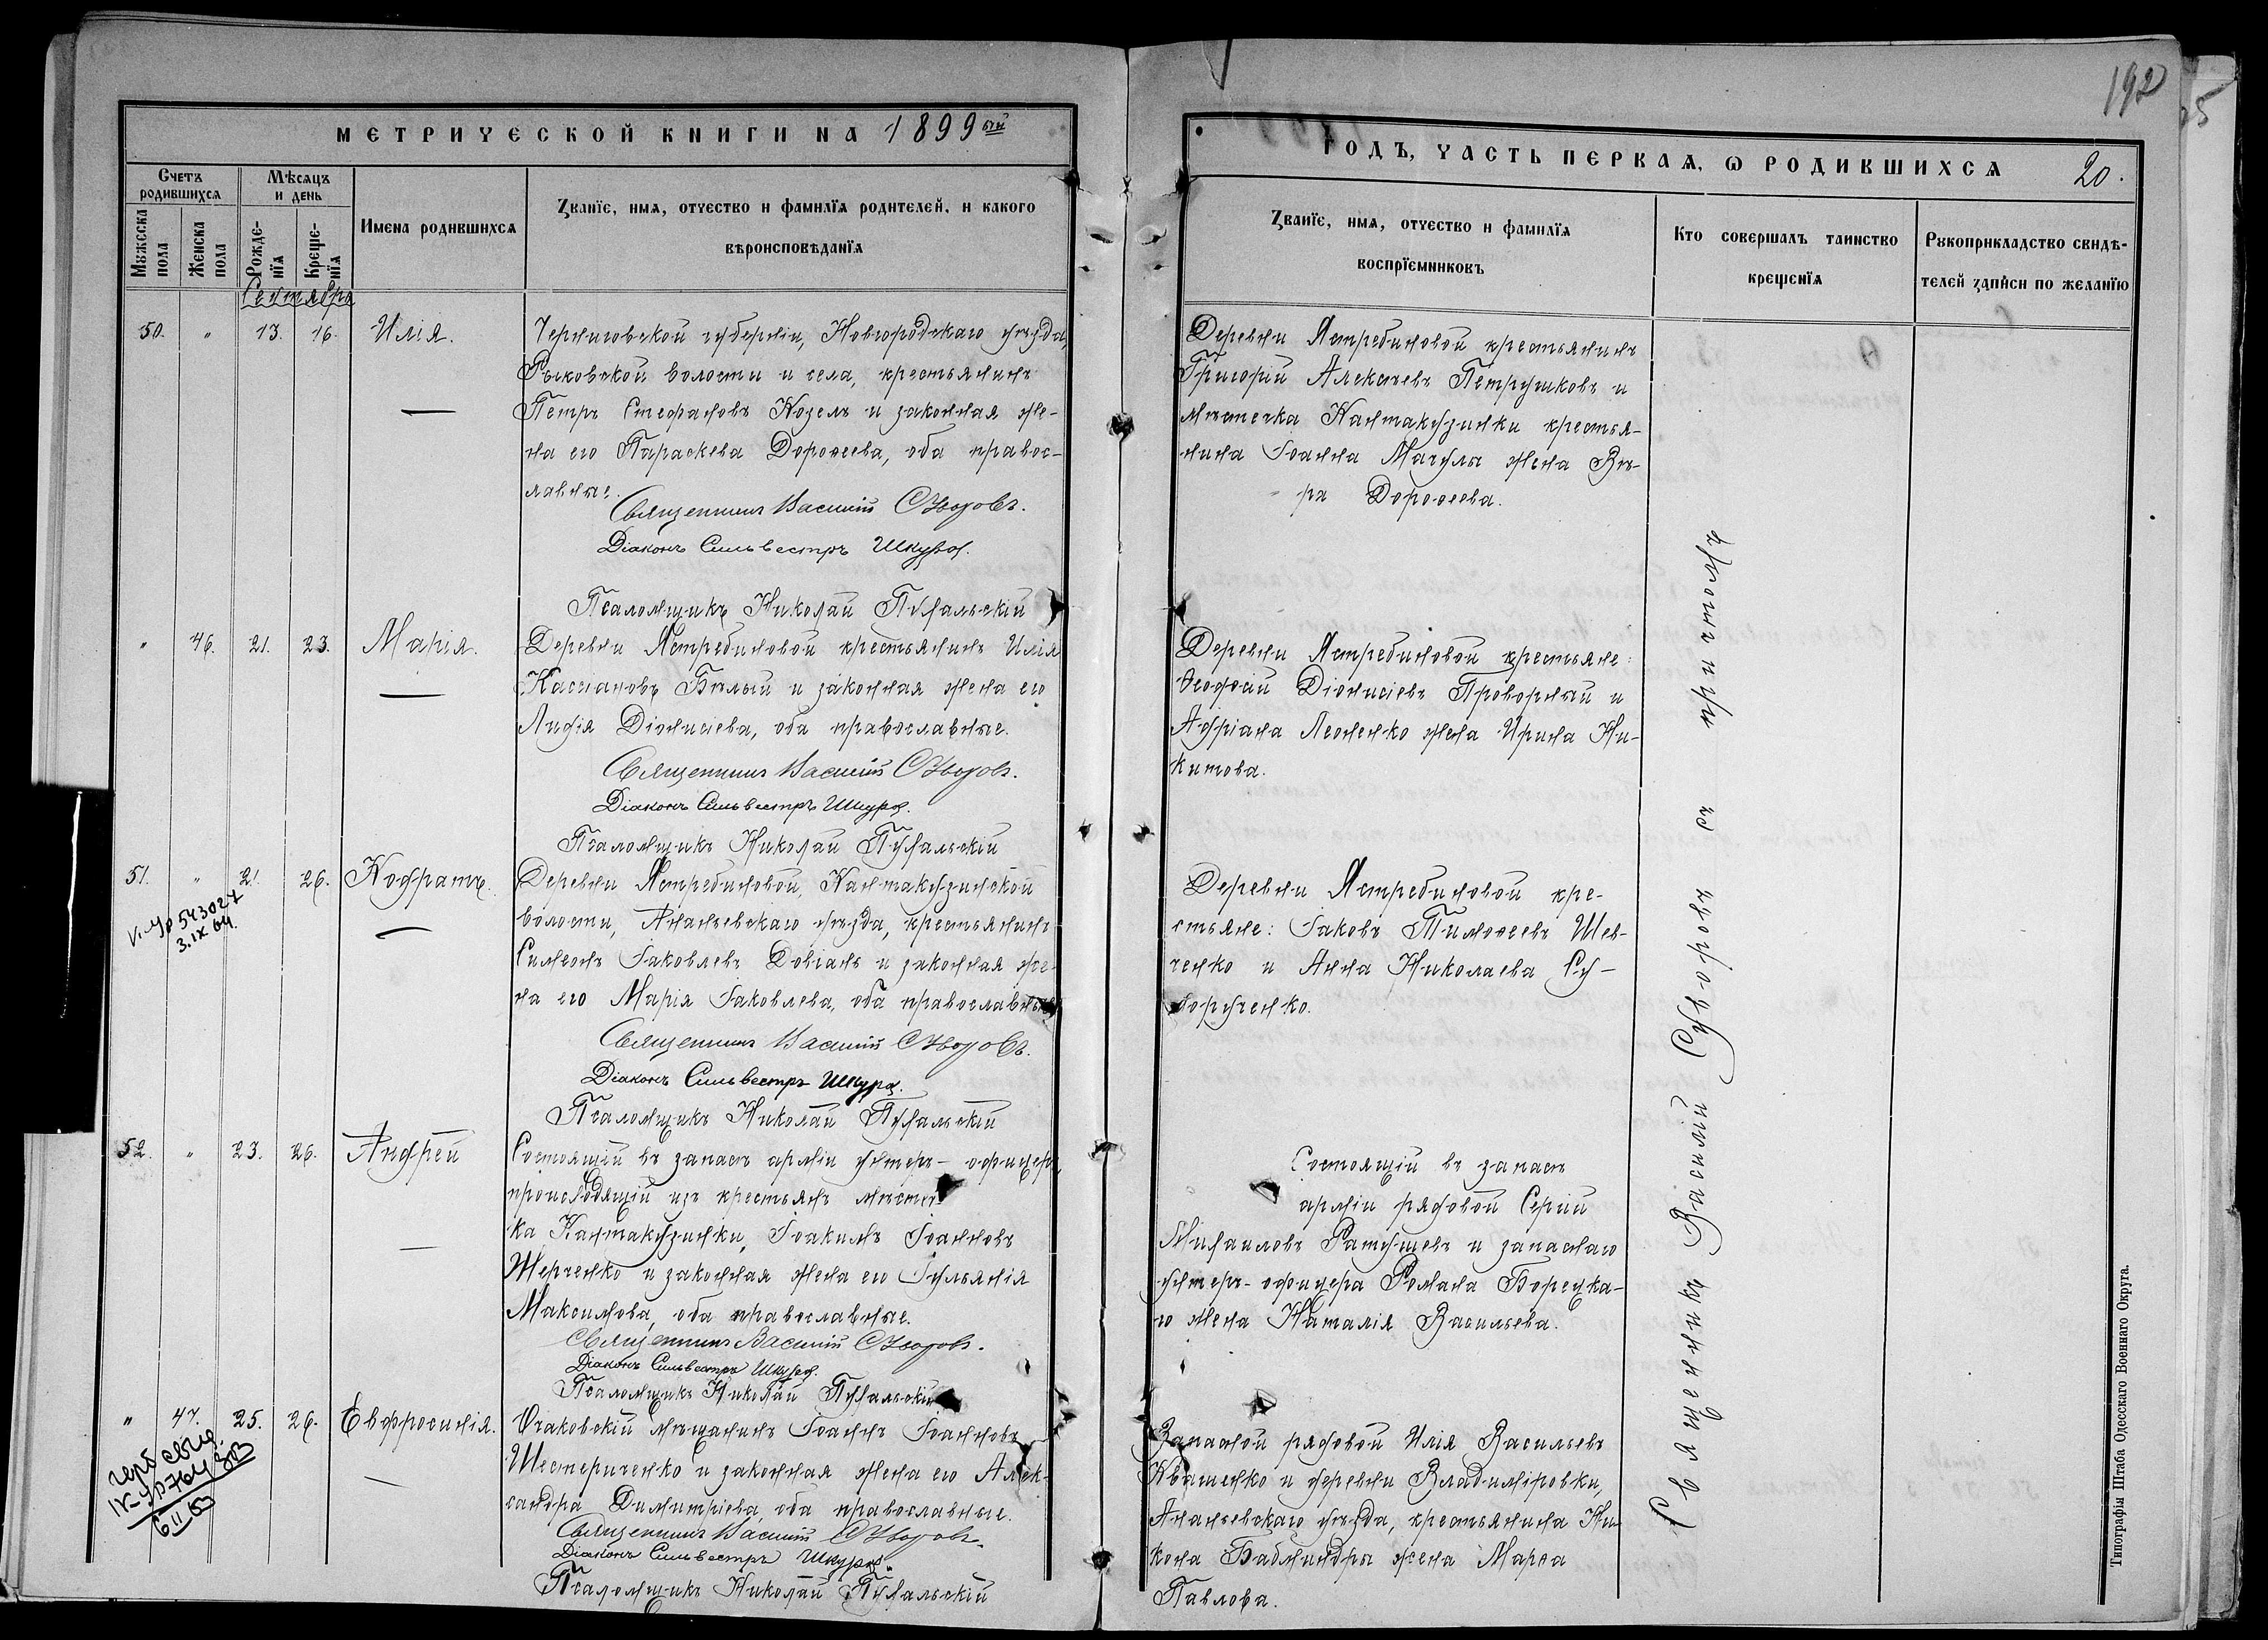 192
МЕТРИЧЕСКОЙ КНИГИ НА 1899ый
ГОДЪ, ЧАСТЬ ПЕРВАЯ, Ѡ РОДИВШИХСЯ 20.
Счетъ родившихся
Мужеска пола
Женска пола
Мѣсяцъ и день
Рожде-нїя
Креще-нїя
Имена родившихся
Званїе, имя, отчество и фамилїя родителей, и какого
вѣроисповѣданїя
Званїе, имя, отчество и фамилїя
воспрїемниковъ
Кто совершалъ таинство
крещенїя
Рукоприкладство свидѣ-
телей записи по желанїю
Сентября
50. " 13. 16. Илія.
Черниговской губерніи, Новгородскаго уѣзда,
Рыковской волости и села, крестьянинъ
Петръ Стефановъ Козелъ и законная же-
на его Параскева Дороѳеева, оба правос-
лавные.
Священникъ Василій Суворовъ.
Діаконъ Сильвестръ Шкура.
Псаломщикъ Николай
Деревни Ястребиновой крестьянинъ
Григорій Алексѣевъ Петрушковъ и
мѣстечка Кантакузинки крестья-
нина Іоанна Мачулы жена Вѣ-
ра Дороѳеева.
" 46. 21. 23. Марія.
Деревни Ястребиновой крестьянинъ Илія
Кассіановъ Бѣлый и законная жена его
Лидія Діонисіева, оба православные.
Священникъ Василій Суворовъ.
Діаконъ Сильвестръ Шкура.
Псаломщикъ Николай
Деревни Ястребиновой крестьяне:
Ѳеодосій Діонисіевъ Проворный и
Адріана Леоненко жена Ирина Ни-
китова.
51. " 21. 26. Кодратъ.
543027
3.IX 64.
Деревни Ястребиновой, Кантакузинской
волости, Ананьевскаго уѣзда, крестьянинъ
Симеонъ Іаковлевъ Довгань и законная же-
на его Марія Іаковлева, оба православные
Священникъ Василій Суворовъ.
Діаконъ Сильвестръ Шкура.
Псаломщикъ Николай
Деревни Ястребиновой кре-
стьяне: Іаковъ Тимоѳеевъ Шев-
ченко и Анна Николаева Су-
ворученко.
52. " 23. 26. Андрей
Состоящій въ запасѣ арміи унтеръ-офицеръ,
происходящій изъ крестьянъ мѣстеч-
ка Кантакузинки, Іоакимъ Іоанновъ
Шерченко и законная жена его Іуліанія
Максимова, оба православные.
Священникъ Василій Суворовъ.
Діаконъ Сильвестръ Шкура.
Псаломщикъ Николай
Состоящій въ запасѣ
арміи рядовой Сергій
Михаиловъ Ратушевъ и запаснаго
унтеръ-офицера Романа Борецка-
го жена Наталія Васильева.
" 47. 25. 26. Евфросинія.
Очаковскій мѣщанинъ Іоаннъ Іоанновъ
Шестериченко и законная жена его Алек-
сандра Димитріева, оба православные.
Священникъ Василій Суворовъ.
Діаконъ Сильвестръ Шкура.
Псаломщикъ Николай
Запасной рядовой Илія Васильевъ
Квашенко и деревни Владиміровки,
Ананьевскаго уѣзда, крестьянина Ни-
кона жена Марѳа
Павлова.
Священникъ Василій Суворовъ съ причтомъ
Типографія Штаба Одесскаго Военнаго Округа.